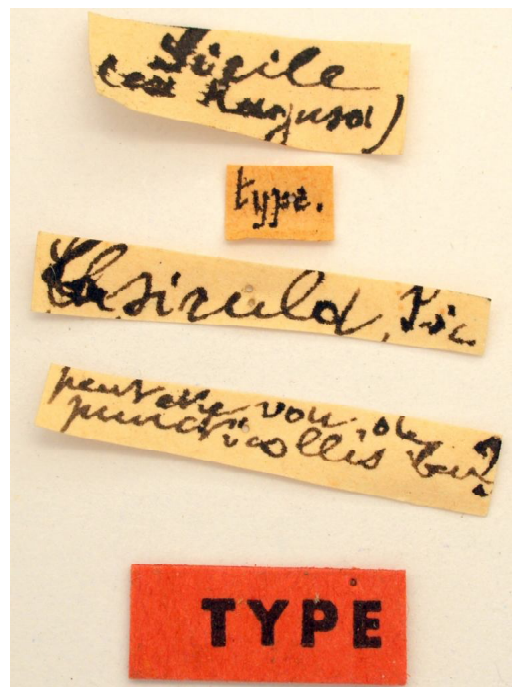 Sicile
(ex Ragusa)
type.
sicula, Pic
peut etre var. de
puncticollis
TYPE